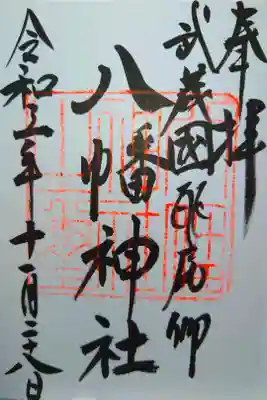 奉拝
武蔵國
八幡神社
令和三年十一月二十八日